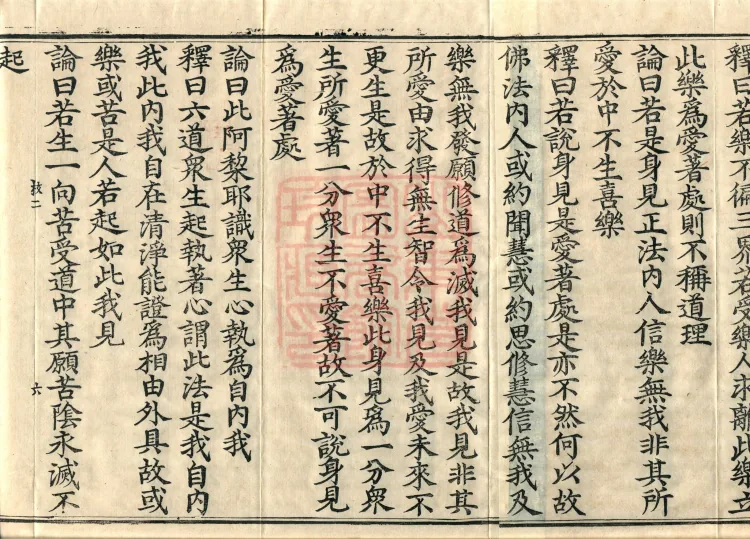 釋曰若樂不徧三界若受樂人求離此樂立
此樂爲愛著處則不稱道理
論曰若是身見正法內人信樂無我非其所
愛於中不生喜樂
釋曰若說身見是愛著處是亦不然何以故
佛法內人或約聞慧或約思修慧信無我及
樂無我發願修道爲滅我見是故我見非其
所愛由求得無生智令我見及我愛未來不
更生是故於中不生喜樂此身見爲一分衆
生所愛著一分衆生不愛著故不可說身見
爲愛著處
論曰此阿黎耶識衆生心執爲自內我
釋曰六道衆生起執著心謂此法是我自內
我此內我自在清淨能證爲相由外具故或
樂或苦是人若起如此我見
論曰若生一向苦受道中其願苦陰永滅不
起
六